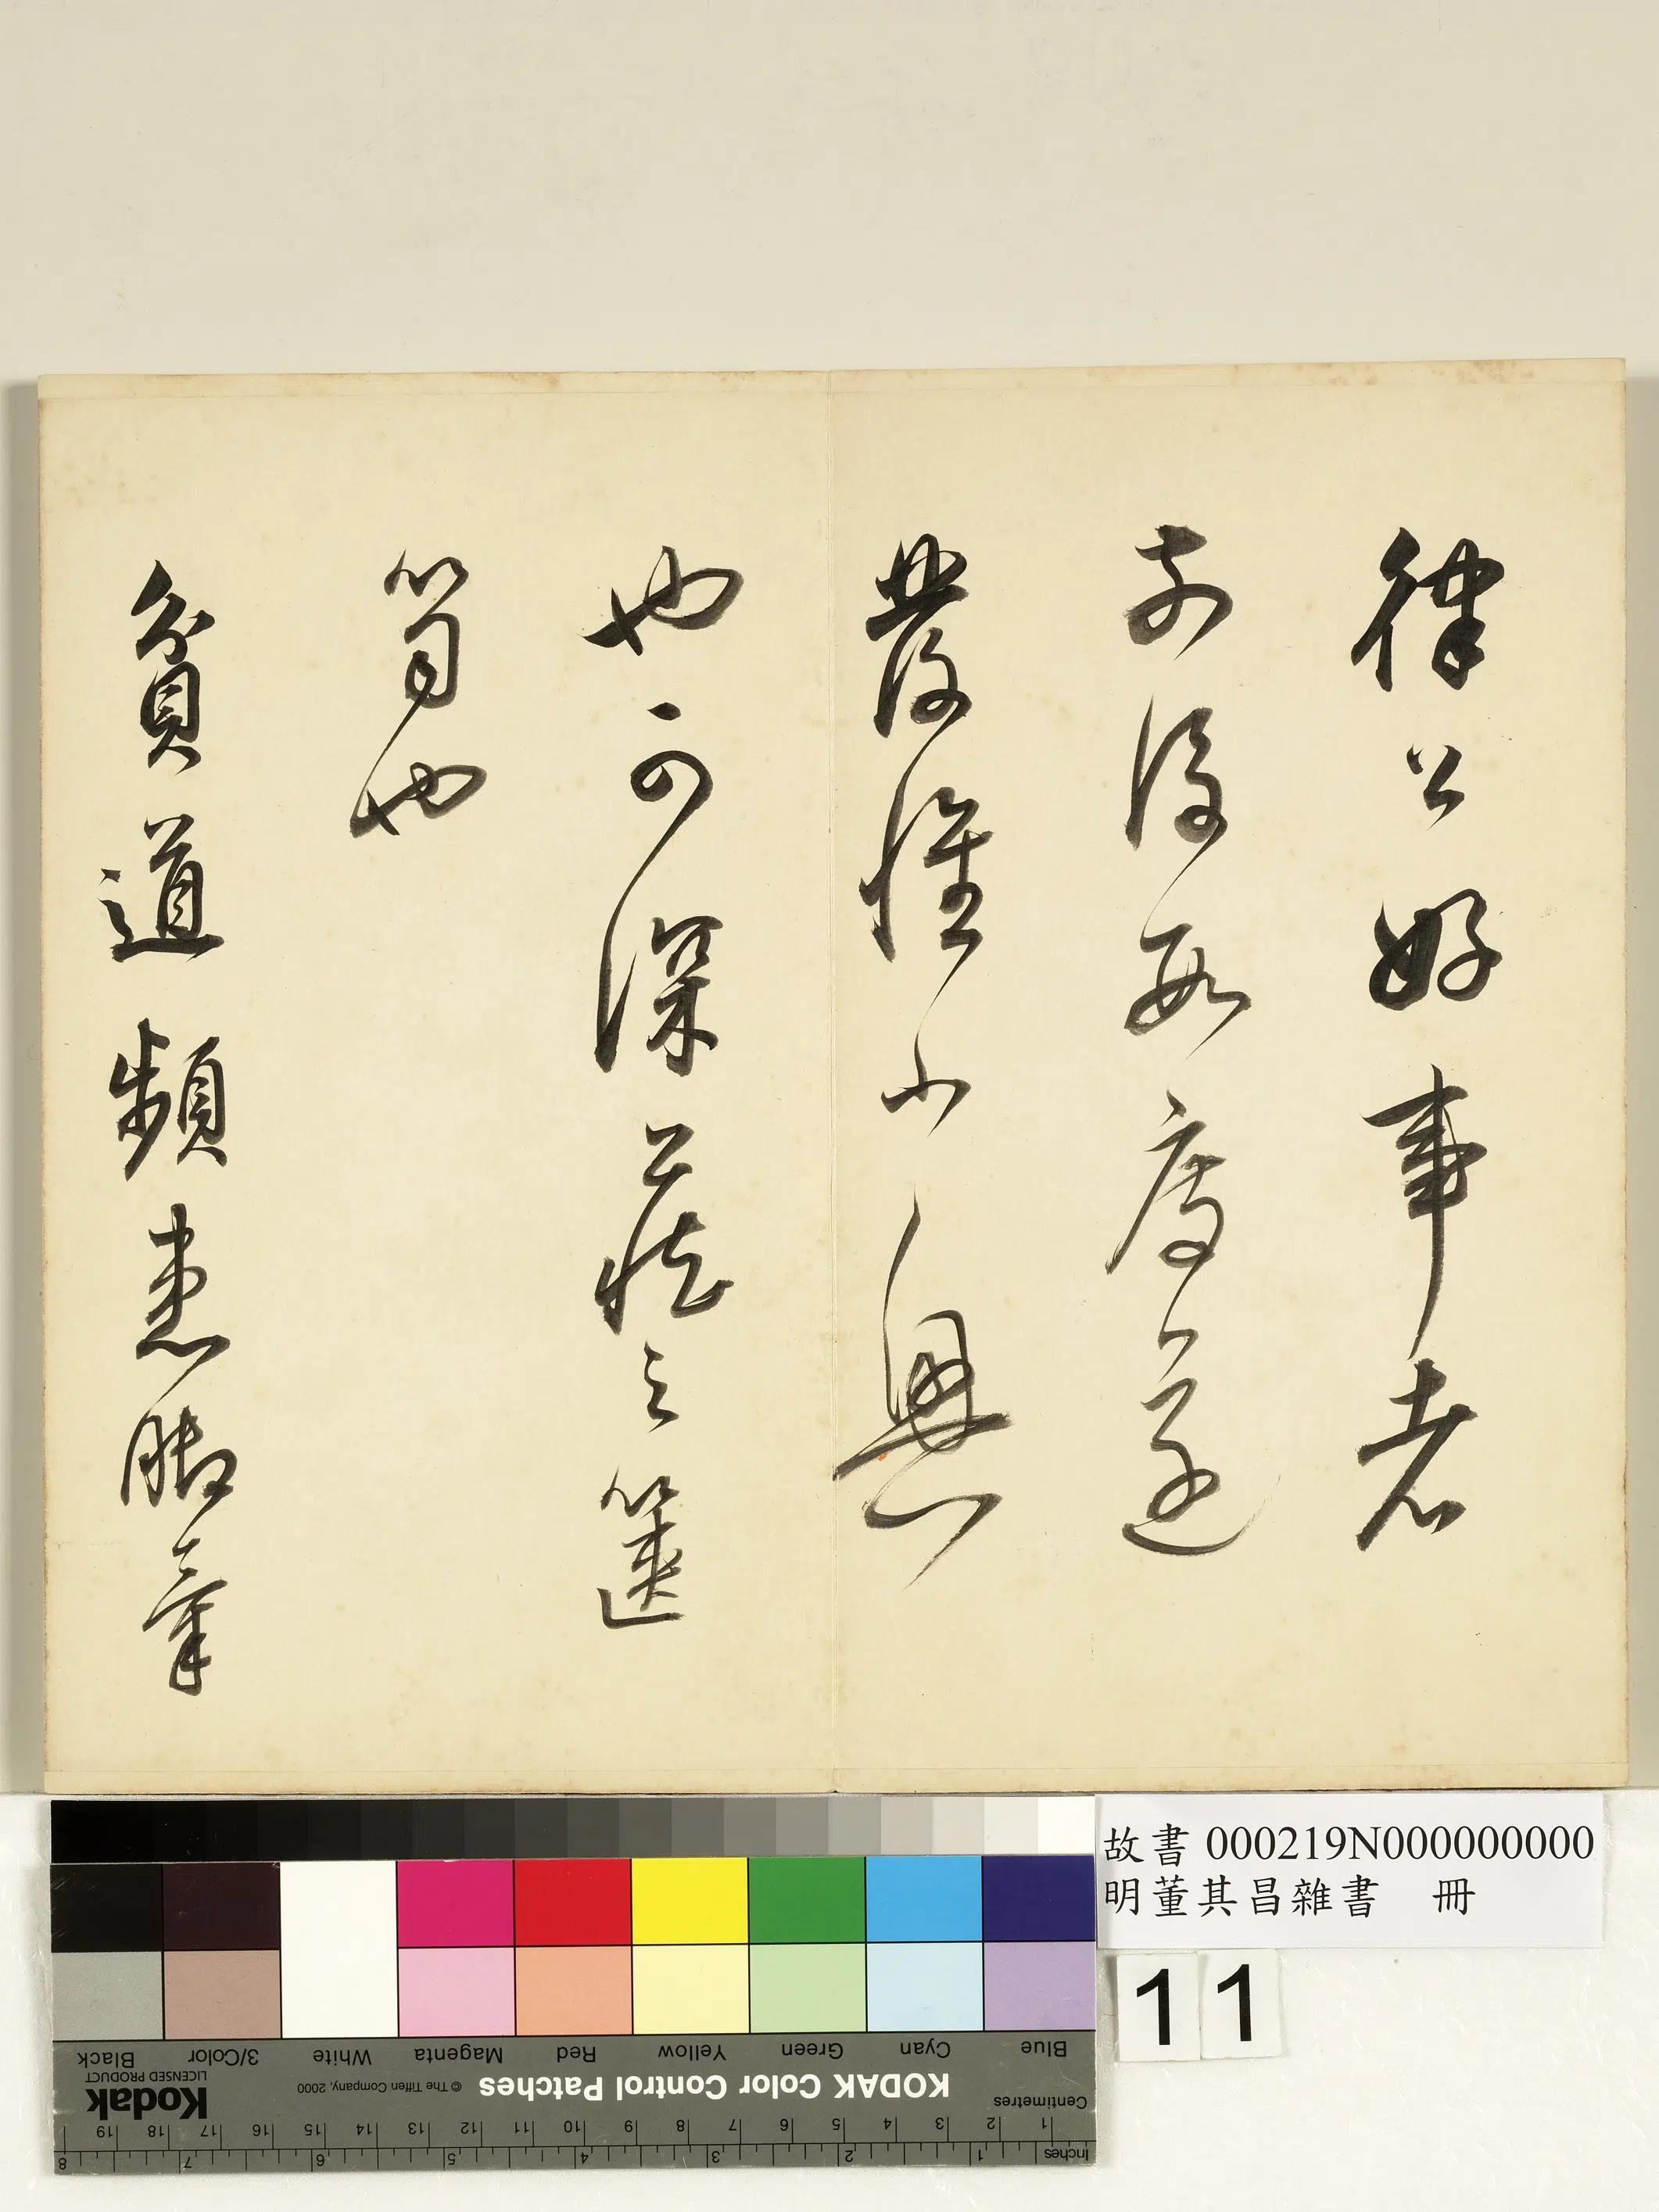 律公好事者
前後數度遂
發懽小興
也可深藏之篋
笥也
貧道頻患腳氣
故書 000219N000000000
明董其昌雜書　冊
11
Blue Cyan Green Yellow Red Magenta White 3/Color Black
KODAK Color Control Patches © The Tiffen Company, 2000 Kodak
LICENSED PRODUCT
Centimetres 1 2 3 4 5 6 7 8 9 10 11 12 13 14 15 16 17 18 19
Inches 1 2 3 4 5 6 7 8